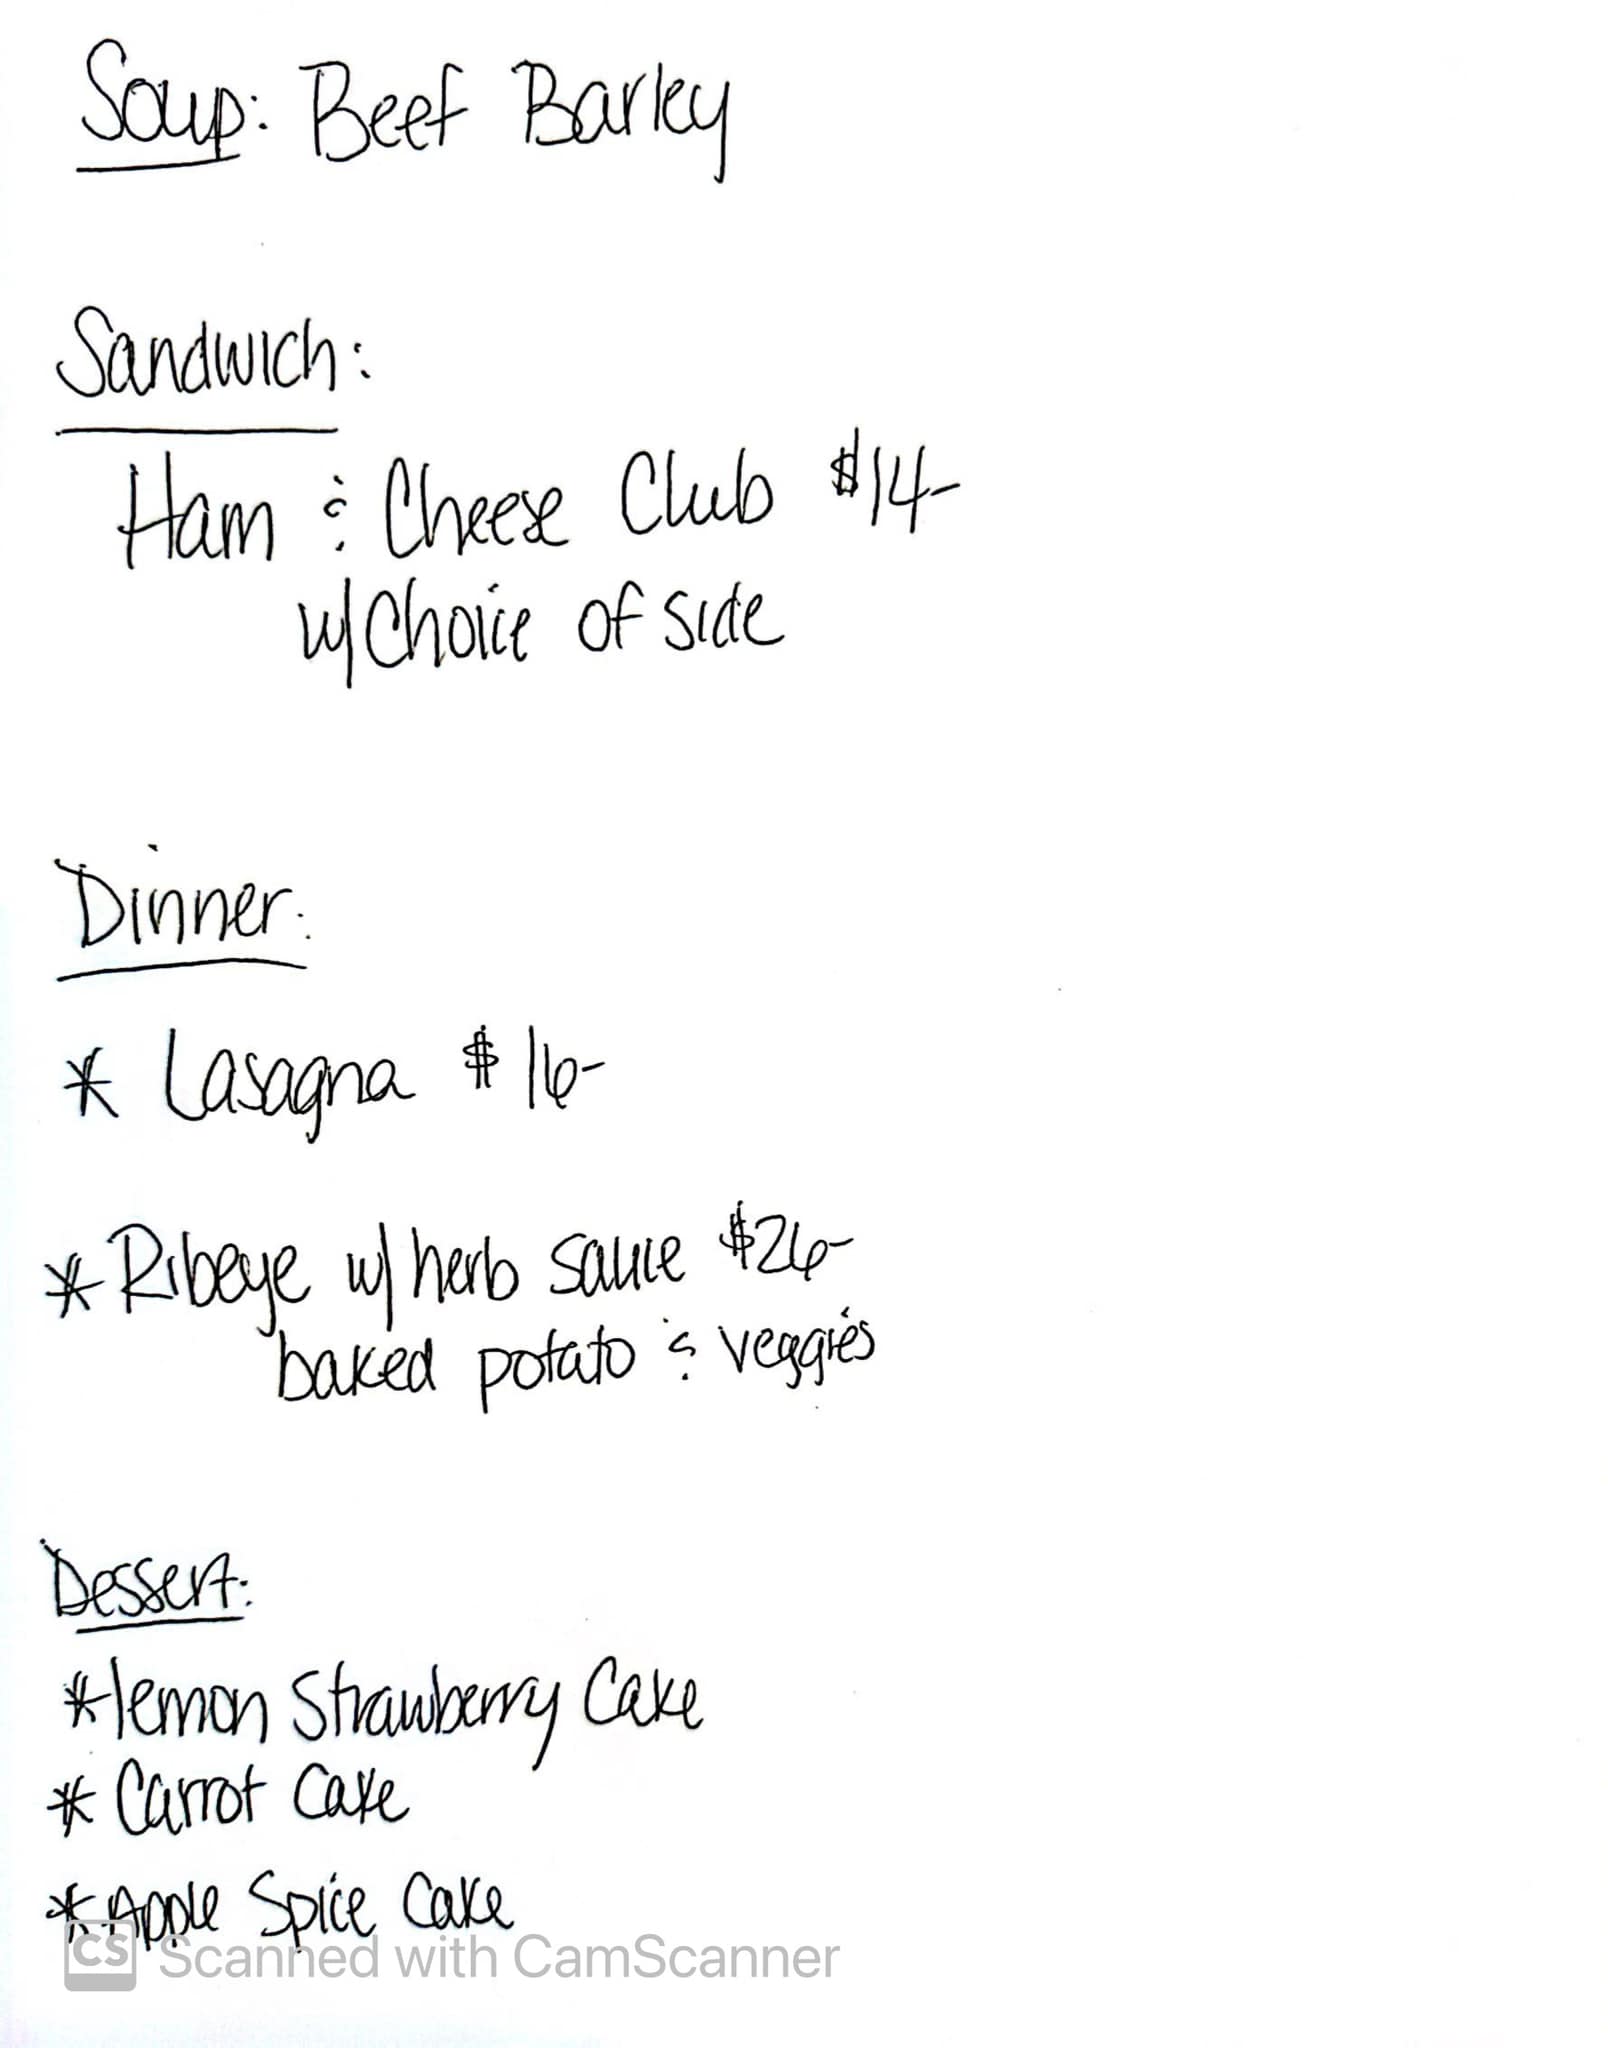 Soup: Beef Barley
Sandwich:
Ham & Cheese Club $14-
w/ Choice of side
Dinner:
* Lasagna $16-
* Ribeye w/ herb sauce $26-
baked potato & veggies
Dessert:
* lemon Strawberry Cake
* Carrot Cake
* Apple Spice Cake
CS Scanned with CamScanner